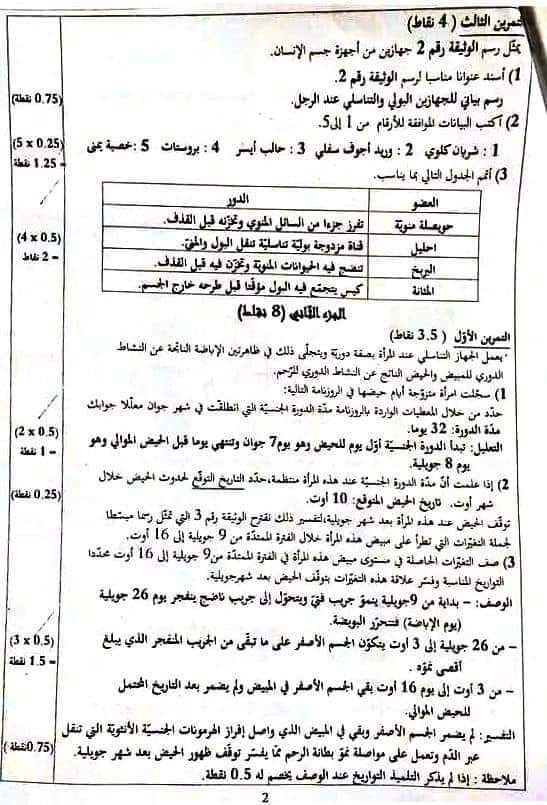 تمرين الثالث ( 4 نقاط)
يمثّل رسم الوثيقة رقم 2 جهازين من أجهزة جسم الإنسان.
1) أسند عنوانا مناسبا لرسم الوثيقة رقم 2.
(0.75 نقطة)
رسم بياني للجهازين البولي والتناسلي عند الرجل.
2) اكتب البيانات الموافقة للأرقام من 1 إلى5.
(5 x 0.25)
= 1.25 نقطة
1 : شريان كلوي 2 : وريد أجوف سفلي 3 : حالب أيسر 4 : بروستات 5 : خصية يمنى
3) أتمم الجدول التالي بما يناسب.
العضو الدور
حويصلة منويّة تفرز جزءا من السائل المنوي وتخزنه قبل القذف.
(4 x 0.5)
= 2 نقاط
احليل قناة مزدوجة بوليّة تناسليّة تنقل البول والمنيّ.
البربخ تنضج فيه الحيوانات المنويّة وتخزّن فيه قبل القذف.
المثانة كيس يتجمّع فيه البول مؤقتا قبل طرحه خارج الجسم.
الجزء الثاني (8 نقاط)
التمرين الأوّل ( 3.5 نقاط)
يعمل الجهاز التناسلي عند المرأة بصفة دوريّة ويتجلّى ذلك في ظاهرتين الإباضة الناتجة عن النشاط
الدوري للمبيض والحيض الناتج عن النشاط الدوري للرّحم.
1) سجّلت امرأة متزوّجة أيام حيضها في الروزنامة التالية:
حدّد من خلال المعطيات الواردة بالروزنامة مدّة الدورة الجنسيّة التي انطلقت في شهر جوان معلّلا جوابك
مدّة الدورة: 32 يوما.
(2 x 0.5)
= 1 نقطة
التعليل: تبدأ الدورة الجنسيّة أوّل يوم للحيض وهو يوم7 جوان وتنتهي يوما قبل الحيض الموالي وهو
يوم 8 جويلية.
2) إذا علمت أنّ مدّة الدورة الجنسيّة عند هذه المرأة منتظمة،حدّد التاريخ المتوقّع لحدوث الحيض خلال
(0.25 نقطة)
شهر أوت. تاريخ الحيض المتوقع: 10 أوت.
توقّف الحيض عند هذه المرأة بعد شهر جويلية،لتفسير ذلك نقترح الوثيقة رقم 3 التي تمثّل رسما مبسّطا
لجملة التغيّرات التي تطرأ على مبيض هذه المرأة خلال الفترة الممتدّة من 9 جويلية إلى 16 أوت.
3) صف التغيّرات الحاصلة في مستوى مبيض هذه المرأة في الفترة الممتدّة من9 جويلية إلى 16 أوت محدّدا
التواريخ المناسبة وفسّر علاقة هذه التغيّرات بتوقّف الحيض بعد شهرجويلية.
الوصف: – بداية من 9جويلية ينموّ جريب فتيّ ويتحوّل إلى جريب ناضج ينفجر يوم 26 جويلية
(يوم الإباضة) فتتحرّر البويضة.
(3 x 0.5)
= 1.5 نقطة
– من 26 جويلية إلى 3 أوت يتكوّن الجسم الأصفر على ما تبقّى من الجريب المنفجر الذي يبلغ
أقصى نموّه .
– من 3 أوت إلى يوم 16 أوت بقي الجسم الأصفر في المبيض ولم يضمر بعد التاريخ المحتمل
للحيض الموالي.
التفسير: لم يضمر الجسم الأصفر وبقي في المبيض الذي واصل إفراز الهرمونات الجنسيّة الأنثويّة التي تنقل
(0.75نقطة )
عبر الدّم وتعمل على مواصلة نموّ بطانة الرحم ممّا يفسّر توقّف ظهور الحيض بعد شهر جويلية.
ملاحظة : إذا لم يذكر التلميذ التواريخ عند الوصف يخصم له 0.5 نقطة.
2